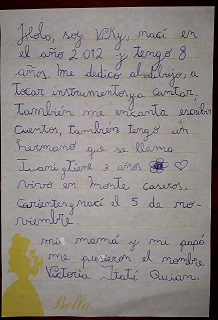 Hola, soy Viky, nací en
el año 2.012 y tengo 8
años. Me dedico al dibujo, a
tocar instrumentos y a cantar.
También me encanta escribir
cuentos, también tengo un
hermano que se llama
Iwani y tiene 3 años
vivo en monte caseros,
Corrientes y nací el 5 de no-
viembre.
mi mamá y mi papá
me pusieron el nombre
Victoria Itatí Quian.
Bella